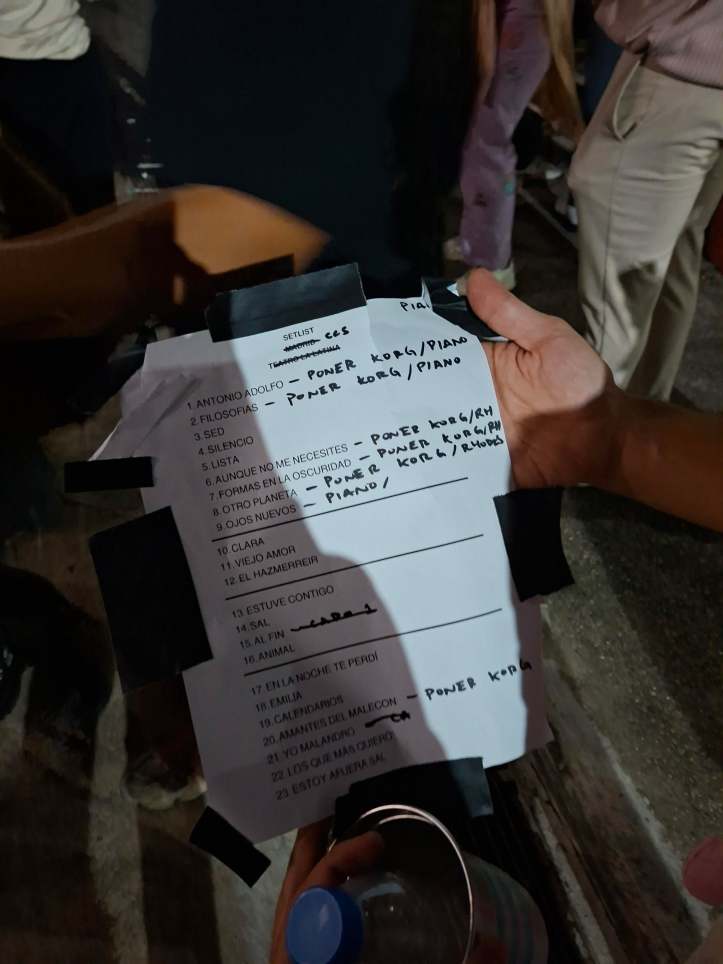 PIA
SETLIST
MADRID CCS
TEATRO LA LATINA
1. ANTONIO ADOLFO - PONER KORG/PIANO
2. FILOSOFIAS - PONER KORG/PIANO
3. SED
4. SILENCIO
5. LISTA
6. AUNQUE NO ME NECESITES - PONER KORG/RH
7. FORMAS EN LA OSCURIDAD - PONER KORG/RH
8. OTRO PLANETA - PONER KORG/RHODES
9. OJOS NUEVOS - PIANO/
10. CLARA
11. VIEJO AMOR
12. EL HAZMERREIR
13. ESTUVE CONTIGO
14. SAL
15. AL FIN
16. ANIMAL
17. EN LA NOCHE TE PERDÍ
18. EMILIA
19. CALENDARIOS
20. AMANTES DEL MALECON - PONER KORG
21. YO MALANDRO
22. LOS QUE MÁS QUIERO
23. ESTOY AFUERA SAL